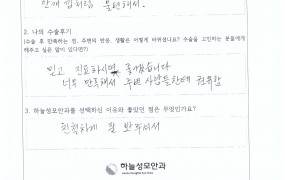 안깨 낍처럼 불편해서.
2. 나의 수술후기
(수술 후 만족하는 점, 주변의 반응, 생활은 어떻게 바뀌셨나요? 수술을 고민하는 분들에게
해주고 싶은 말이 있다면?)
믿고 진료하시면 좋겠습니다
너무 만족해서 주변 사람들한테 권유함
3. 하늘성모안과를 선택하신 이유와 좋았던 점은 무엇인가요?
친절하게 잘 봐주셔서
하늘성모안과